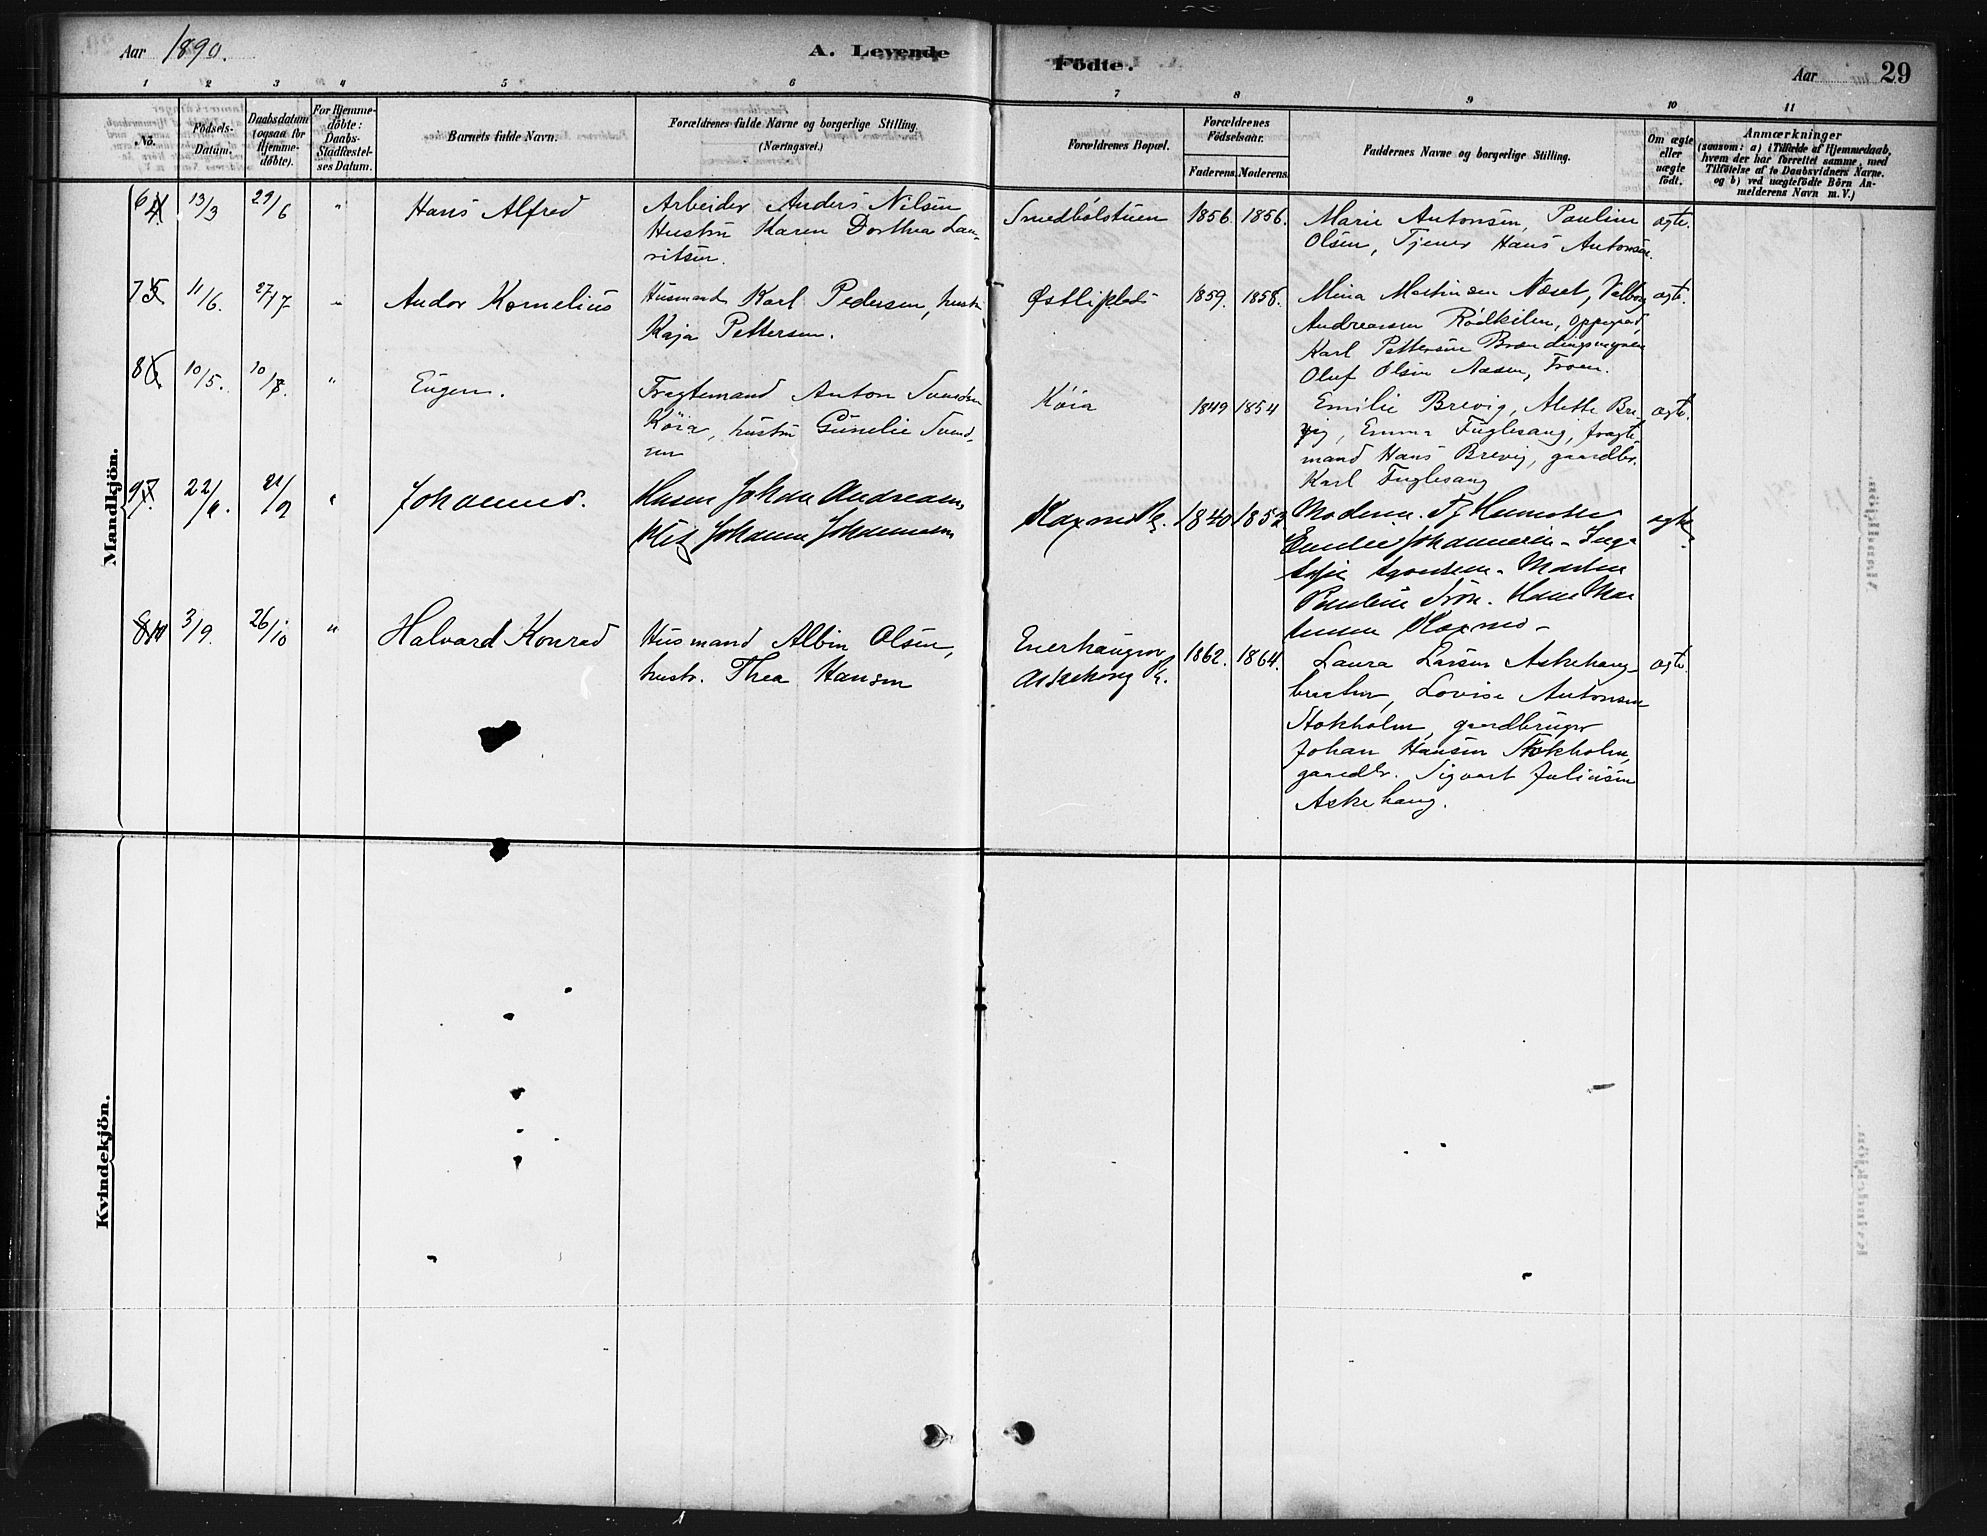 Aar 1890.
A. Levende
Fødte.
Aar 29
1 2 3 4 5 6 7 8 9 10 11
No.
Fødsels-
Datum.
Daabsdatum
(ogsaa for
Hjemme-
døbte).
For Hjemme-
døbte:
Daabs-
Stadfæstel-
ses Datum.
Barnets fulde Navn.
Forældrenes fulde Navne og borgerlige Stilling.
(Næringsvei.)
Forældrenes Bopæl.
Forældrenes
Fødselsaar.
Faderens. Moderens.
Faddernes Navne og borgerlige Stilling.
Om ægte
eller
uægte
født.
Anmærkninger
(saasom: a) i Tilfælde af Hjemmedaab,
hvem der har forrettet samme, med
Tilføielse af to Daabsvidners Navne.
og b) ved uægtefødte Børn An-
melderens Navn m. V.)
Mandkjön.
6 4 13/3 29/6 "
Hans Alfred
Arbeider Anders Nilsen
Hustru Karen Dorthea Lau-
ritsen.
Smedbølstuen
1856. 1856.
Marie Antonsen, Pauline
Olsen, Tjener Hans Antonsen.
ægte.
7 5 11/6. 27/7 "
Andor Kornelius
Husmand Karl Pedersen, hustru
Kaja Pettersen.
Østliplads
1859. 1858.
Mina Martinsen Næset, Valborg
Andreassen Rødkilen, Oppegård,
Karl Pettersen
Oluf Olsen Aasen, Troen.
ægte.
8 6 10/5. 10/8. "
Eugen.
Fragtemand Anton Svendsen
Köia, hustru Gunelie Svend-
sen
Köia
1849 1854
Emilie Brevig, Alette Bre-
vig, Emma Fuglesang, fragte-
mand Hans Brevig, gaardbr.
Karl Fuglesang
ægte.
9 7. 22/6. 21/9 "
Johannes.
Husm Johan Andreasen,
Johanne Johannesen
1840 1852
Moderen.
Emilie Johannesen - Inga
Sofie - Martin
Pauline Trön. Hans Mar
tinsen
ægte.
8 10 3/9. 26/10 "
Halvard Konrad
Husmand Albin Olsen,
hustr. Thea Hansen
Enerhaugen
Askehaug
1862. 1864.
Laura Larsen Askehaug-
bråten, Lovise Antonsen
Stokholm, gaardbruger
Johan Hansen Stokholm,
gaardbr. Sigvart Juliusen
Askehaug.
ægte.
Kvindekjön.